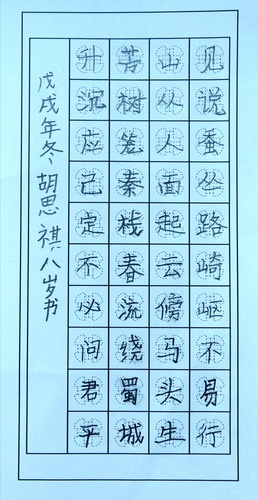 见说蚕丛路崎岖不易行
山从人面起云傍马头生
芳树笼秦栈春流绕蜀城
升沉应已定不必问君平
戊戌年冬胡思祺八岁书